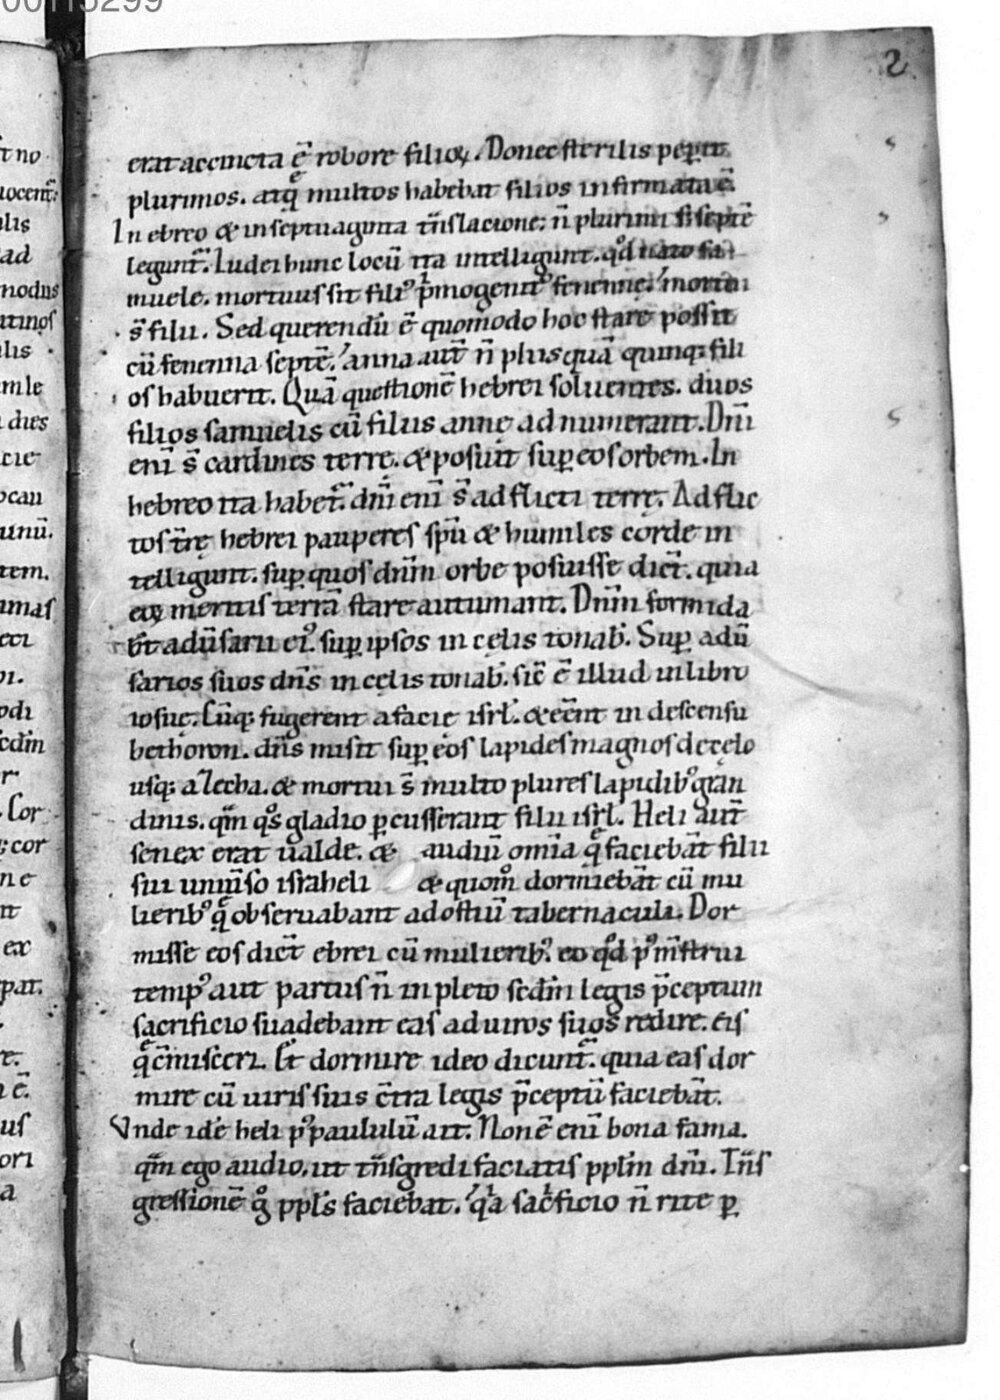 00115299
2
erat accincta ē robore filioꝝ. Donec sterilis peꝑit
plurimos. atq̄ multos habebat filios infirmata ē.
In ebreo & in septuaginta t̄nslacione: n̄ plurimi s; septē
legunt̄. Iudei hunc locū ita intelligunt. qd̊ nato sa
muele. mortuus sit filiꝰ p̄mogenitꝰ fenenne. mortui
s̄ filii. Sed querendū ē quomodo hoc stare possit
cū fenenna septē. anna aut̄ n̄ plus quā quinq; fili
os habuerit. Quā questionē hebrei soluentes. duos
filios samuelis cū filiis annę ad numerant. Dn̄i
eni s̄ cardines terrę. & posuit suꝑ eos orbem. In
hebreo ita habet̄. dn̄i eni s̄ ad flicti terrę. Ad flic
tos t̄rę hebrei pauperes sp̄u & humiles corde in
telligunt. suꝑ quos dn̄m orbē posuisse dic̄t. quia
eoꝝ meritis terrā stare autumant. Dn̄m formida
bt̄ adūsarii eiꝰ. suꝑ ipsos in cęlis tonab̄. Suꝑ adū
sarios suos dn̄s in cęlis tonab̄. sic̄ ē illud in libro
iosuę. Cūq; fugerent a facie isrl̄. & eēnt in descensu
bethoron. dn̄s misit suꝑ eos lapides magnos de cęlo
usq; azecha. & mortui s̄ multo plures lapidibꝰ gran
dinis. qm̄ qs̊ gladio ꝑcusserant filii isrl̄. Heli aut̄
senex erat ualde. & audiū omīa q̄ faciebāt filii
sui uniūso israheli & quom̊ dormiebāt cū mu
lieribꝰ q̄ obseruabant ad ostiū tabernaculi. Dor
misse eos dic̄t ebrei cū mulieribꝰ. eo qd̊ pꝰ m̄strui
tempꝰ aut partus n̄ in pleto scdm̄ legis p̄ceptum
sacrificio suadebant eas ad uiros suos redire. eis
q̄ c̄misceri. Et dormire ideo dicunt̄. quia eas dor
mire cū uiris suis c̄tra legis p̄ceptū faciebāt.
Vnde idē heli pꝰ paululū ait. Non ē enī bona fama.
qm̄ ego audio. ut t̄nsgredi faciatis pplm̄ dn̄i. T̄ns
gressionē g̊ ppls̄ faciebat. qa sac̄ficio n̄ rite ꝑ